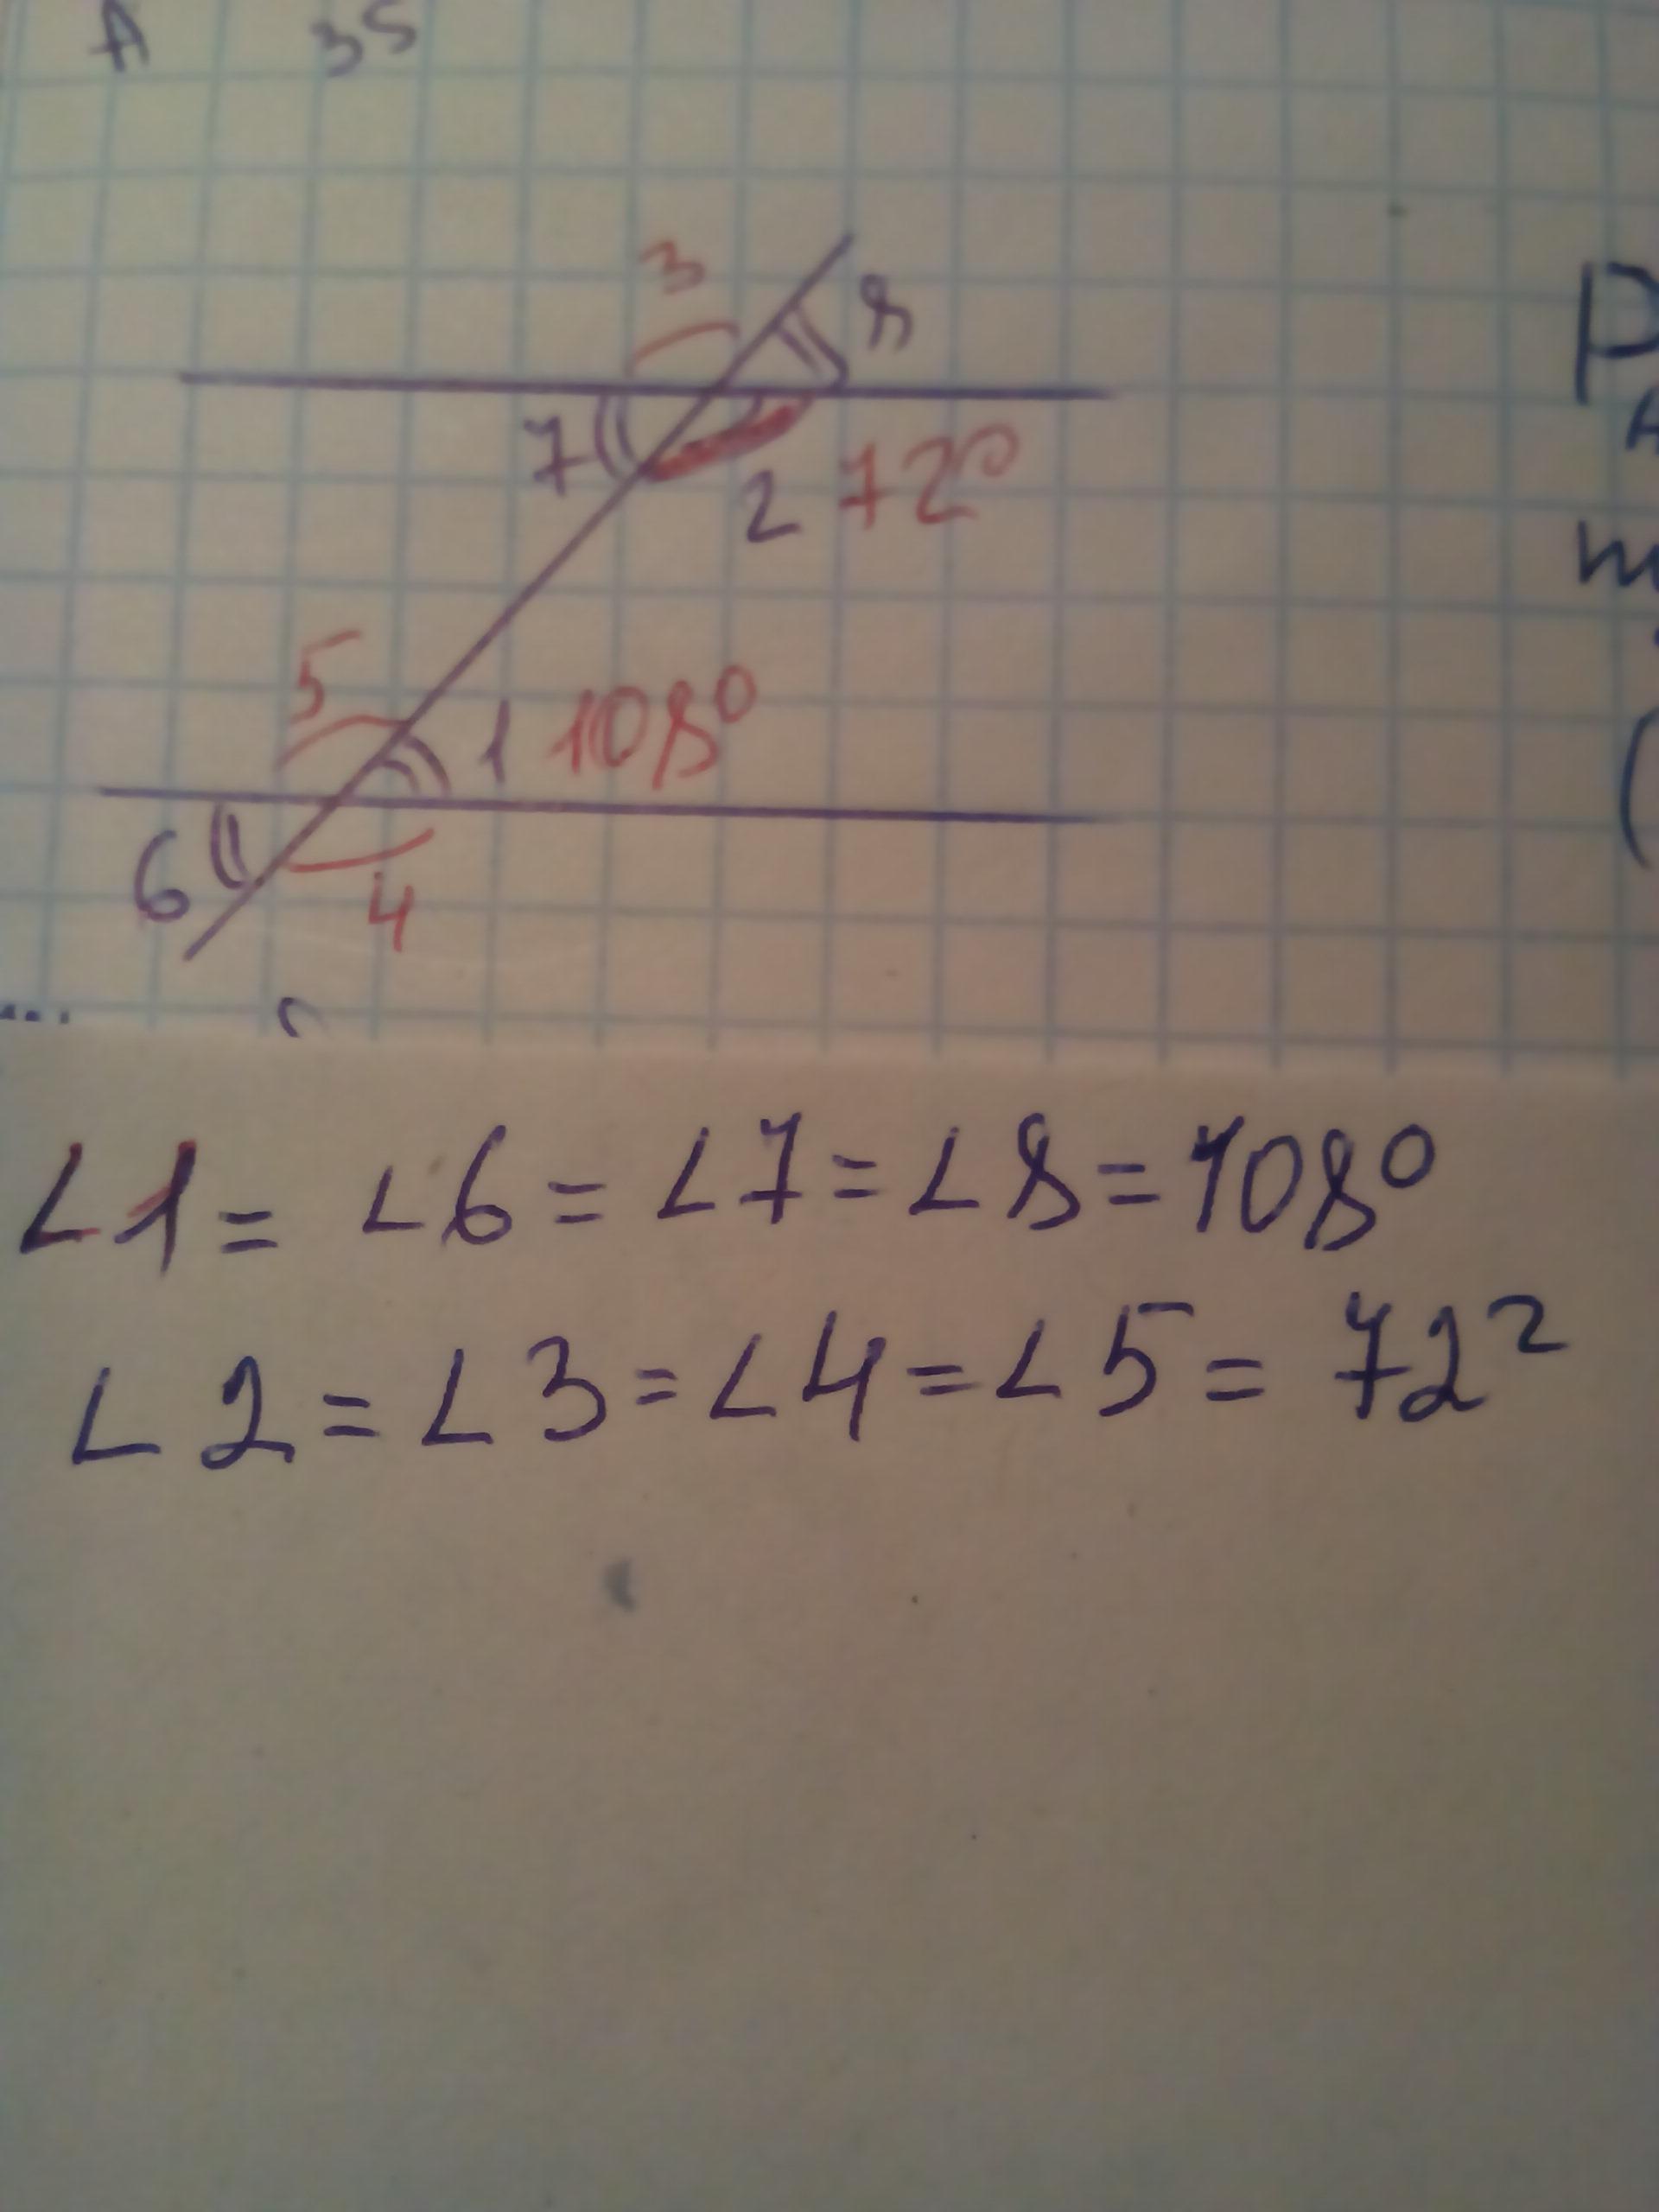 A 35
3 8
7 2 72°
5 1 108°
6 4
∠1 = ∠6 = ∠7 = ∠8 = 108°
∠2 = ∠3 = ∠4 = ∠5 = 72²